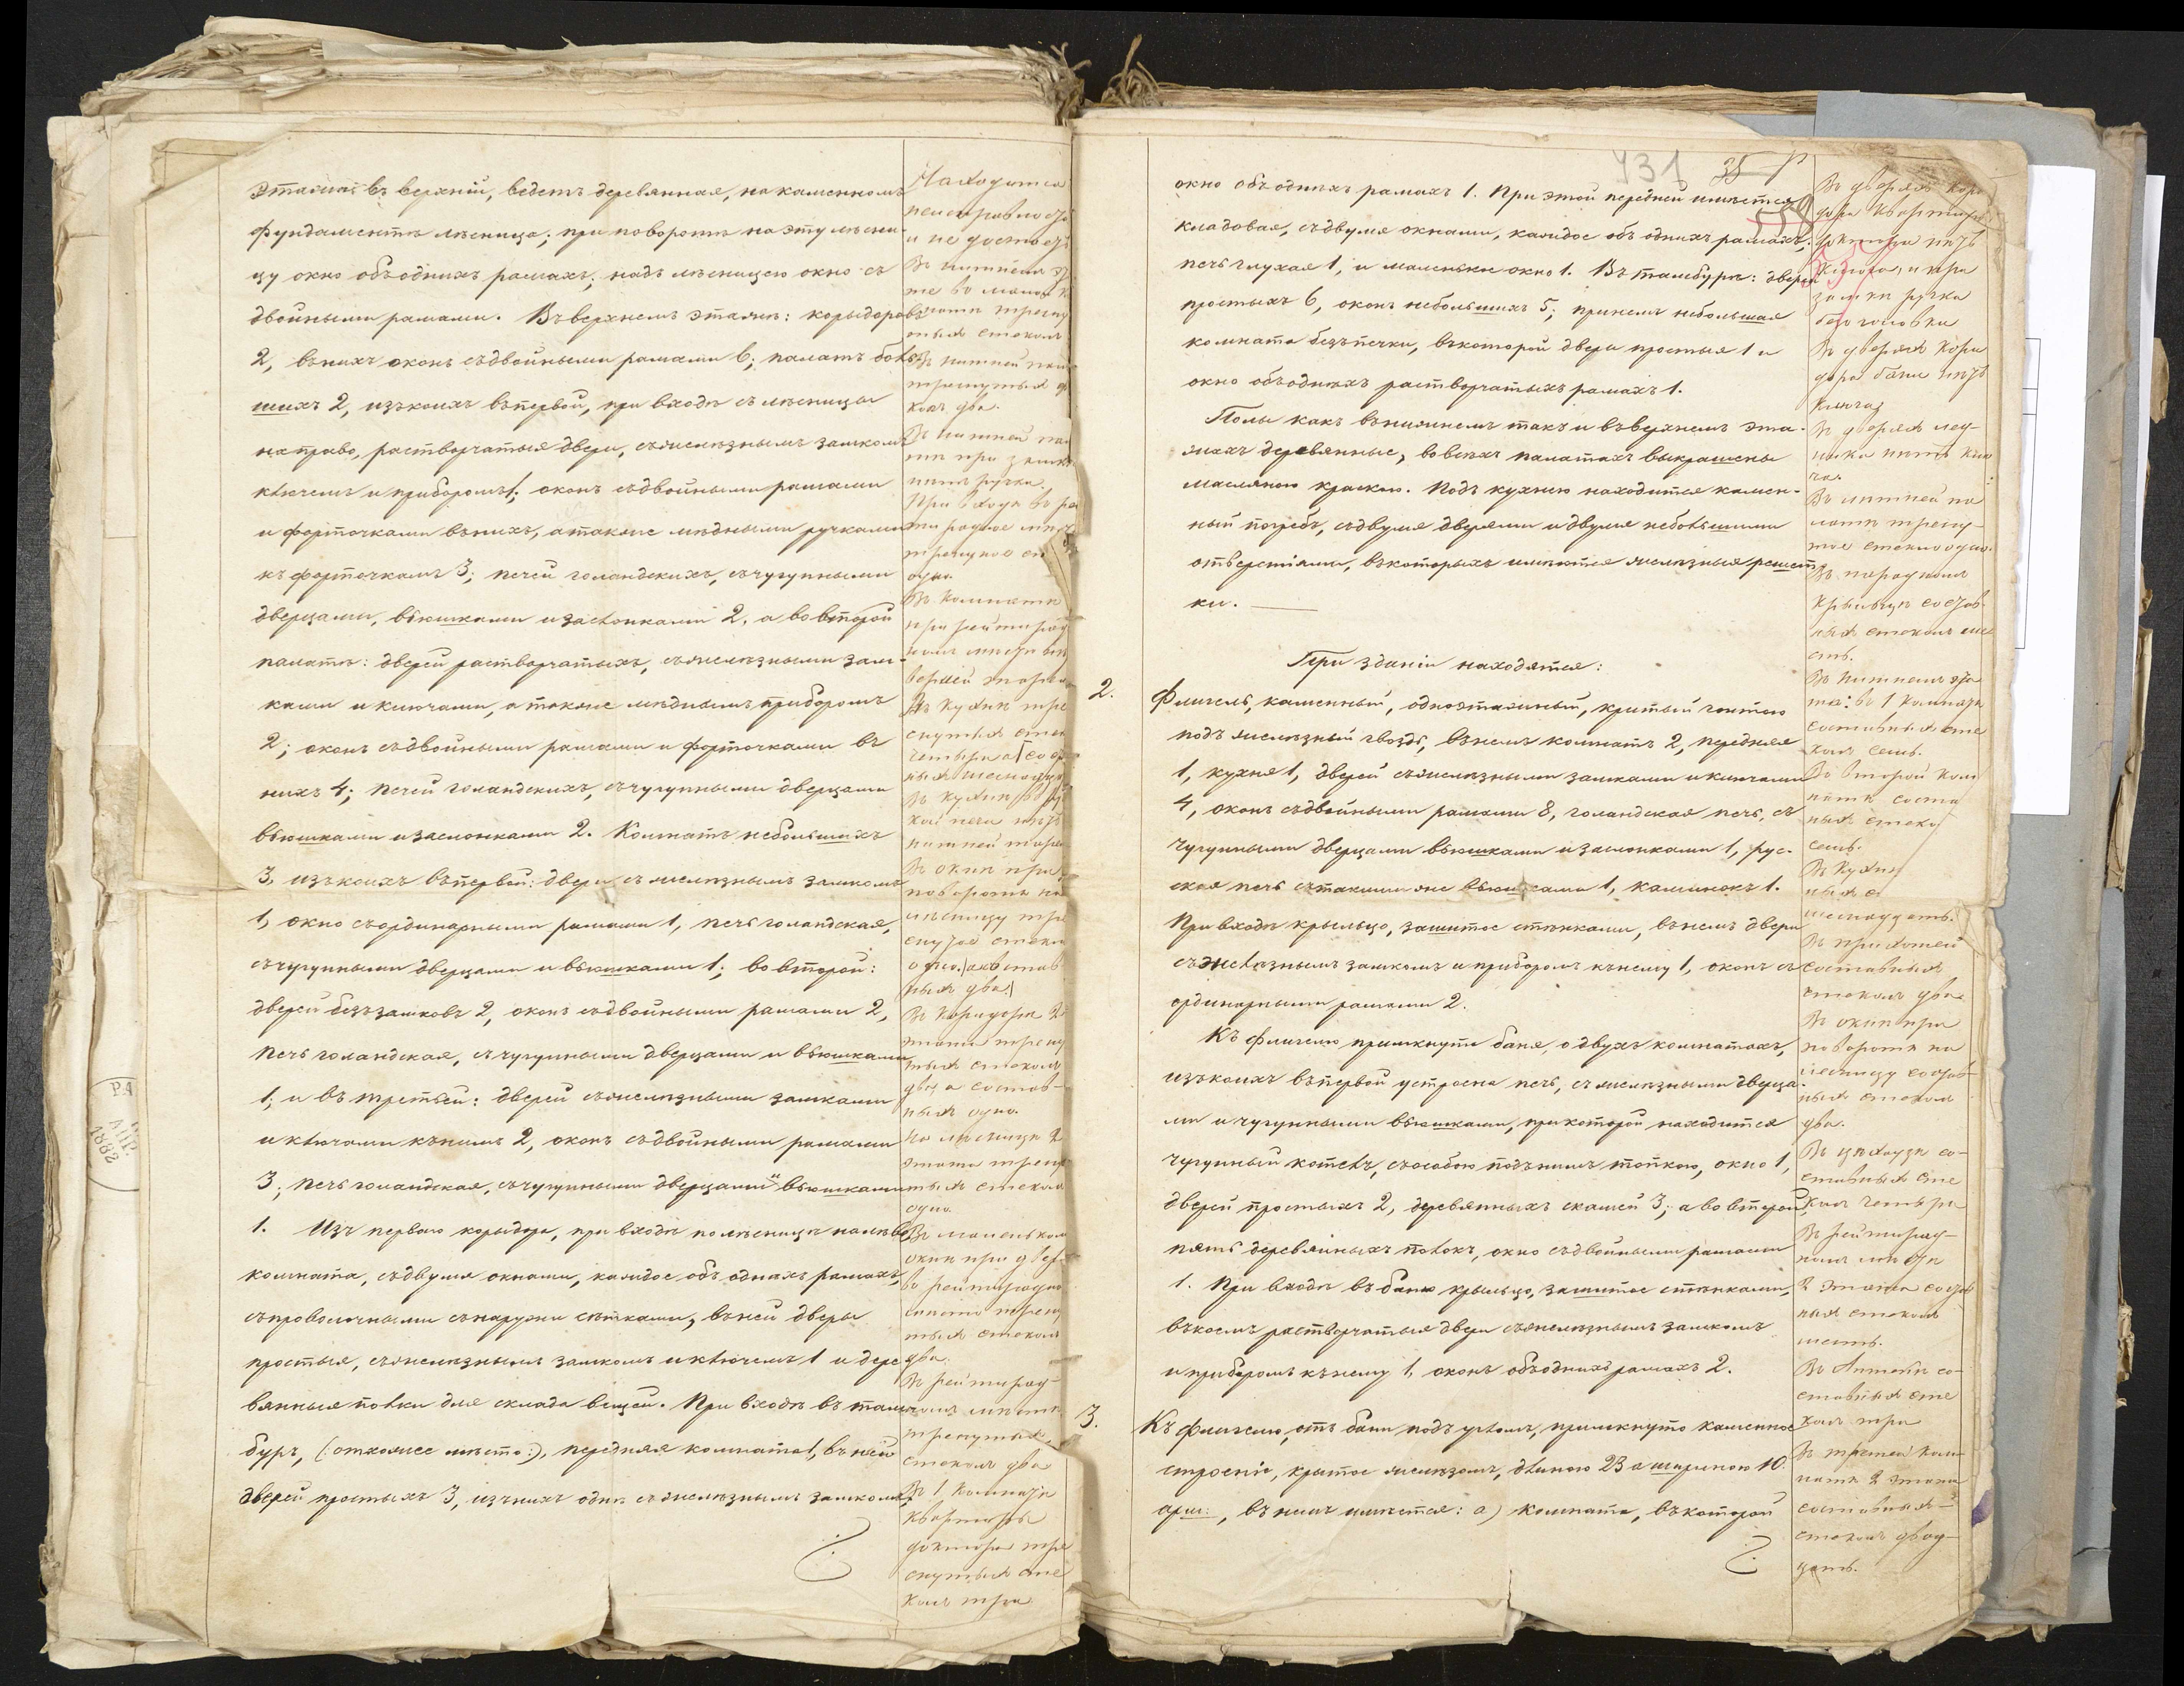 этажа въ верхній, ведетъ деревянная, на каменномъ
фундаментѣ лѣсница; при поворотѣ на эту лѣсни-
цу окно объ однихъ рамахъ; надъ лѣсницею окно съ
двойными рамами. Въ верхнемъ этажѣ: корыдоровъ
2, въ нихъ оконъ съ двойными рамами 6; палатъ боль-
шихъ 2, изъ коихъ въ первой, при входѣ съ лѣсницы
направо, растворчатыя двери, съ желѣзнымъ замкомъ
ключемъ и приборомъ 1; оконъ съ двойными рамами
и форточками въ нихъ, а также мѣдными ручками
къ форточкамъ 3; печей голандскихъ, съ чугунными
дверцами, вьюшками и заслонками 2, а во второй
палатѣ: дверей растворчатыхъ, съ желѣзными зам-
ками и ключами, а также мѣднымъ приборомъ
2; оконъ съ двойными рамами и форточками въ
нихъ 4; печей голандскихъ, съ чугунными дверцами
вьюшками и заслонками 2. Комнатъ небольшихъ
3, изъ коихъ въ первой: двери съ желѣзнымъ замкомъ
1, окно съ ординарными рамами 1, печь голандская,
съ чугунными дверцами и вьюшками 1; во второй:
дверей безъ замковъ 2, оконъ съ двойными рамами 2,
печь голандская, съ чугунными дверцами и вьюшками
1; и въ третьей: дверей съ желѣзными замками
и ключами къ нимъ 2, оконъ съ двойными рамами
3; печь голандская, съ чугунными дверцами и вьюшками
1. Изъ перваго корыдора, при входѣ по лѣсницѣ налѣво
комната, съ двумя окнами, каждое объ однихъ рамахъ,
съ проволочными снаружи сѣтками, въ ней дверы
простыя, съ желѣзнымъ замкомъ и ключемъ 1 и дере-
вянныя полки для склада вещей. При входѣ въ там-
буръ, (:отхожее мѣсто:), передняя комната 1, въ ней
дверей простыхъ 3, изъ нихъ однѣ съ желѣзнымъ замкомъ,
Находится
неисправности
и не достаетъ
Въ нижней па-
треснутыхъ
конъ два.
Въ нижней пал
тѣ при замкѣ
нѣтъ ручки.
При входѣ въ
треснуто
одно.
Въ комнатѣ
при ретирад
номъ мѣстѣ
Въ кухнѣ тре
снутыхъ сте
четыре а состав
ныхъ
Въ кухнѣ
кой печи нѣтъ
Въ окнѣ при
поворотѣ на
лѣсницу тре
снутое стекло
одно, а состав
ныхъ два.
Въ коридорѣ 2
этажа тресну
тыхъ стеколъ
два а состав-
ныхъ одно.
На лѣсницѣ 2
этажа тресну
тыхъ стеколъ
одно.
Въ маленькомъ
окнѣ при двер
въ ретирадно
тыхъ стеколъ
два.
Въ ретирад-
номъ мѣстѣ
треснутыхъ
стеколъ два
Въ 1 комнатѣ
квартиры
доктора тре
снутыхъ сте
колъ три
431 35
окно объ однихъ рамахъ 1. При этой передней имѣется
кладовая, съ двумя окнами, каждое объ однихъ рамахъ,
печь глухая 1, и маленькое окно 1. Въ тамбурѣ: дверей
простыхъ 6, оконъ небольшихъ 5; при немъ небольшая
комната безъ печки, въ которой двери простыя 1 и
окно объ однихъ растворчатыхъ рамахъ 1.
Полы какъ въ нижнемъ такъ и въ верхнемъ эта-
жахъ деревянные, во всѣхъ палатахъ выкрашены
масляною краскою. Подъ кухнею находится камен-
ный погребъ, съ двумя дверями и двумя небольшими
отверстіями, въ которыхъ имѣются желѣзныя решет-
ки.
При зданіи находятся:
2. Флигель, каменный, одноэтажный, крытый гонтомъ
подъ желѣзный гвоздь, въ немъ комнатъ 2, передняя
1, кухня 1, дверей съ желѣзными замками и ключами
4, оконъ съ двойными рамами 8, голандская печь, съ
чугунными дверцами вьюшками и заслонками 1, рус-
ская печь съ такими же вьюшками 1, каминокъ 1.
При входѣ крыльцо, зашитое стѣнками, въ немъ двери
съ желѣзнымъ замкомъ и приборомъ къ нему 1, оконъ съ
ординарными рамами 2.
Къ флигелю примкнута баня, о двухъ комнатахъ,
изъ коихъ въ первой устроена печь, съ желѣзными дверца-
ми и чугунными вьюшками, при которой находится
чугунный котелъ, съ особою подъ нимъ топкою, окно 1,
дверей простыхъ 2, деревянныхъ скамей 3; а во второй,
пять деревянныхъ полокъ, окно съ двойными рамами
1. При входѣ въ баню крыльцо, зашитое стѣнками,
въ коемъ растворчатыя двери съ желѣзнымъ замкомъ
и приборомъ къ нему 1, оконъ объ однихъ рамахъ 2.
3. Къ флигелю, отъ бани подъ угломъ, примкнуто каменное
строеніе, крытое желѣзомъ, длиною 23 а шириною 10
арш:, въ немъ имѣется: а) комната, въ которой
Въ дверяхъ кори
дора квартиры
доктора нѣтъ
ключа, и при
замкѣ ручка
безъ головки
Въ дверяхъ кори
дора бани нѣтъ
ключа
Въ дверяхъ лед-
ника нѣтъ клю
ча.
Въ нижней па
латѣ тресну-
тое стекло одно.
Въ парадномъ
крыльцѣ состав-
ныхъ стеколъ ше
сть.
Въ нижнемъ эта
жѣ: въ 1 комнатѣ
составныхъ сте
колъ семь.
Въ второй ком
натѣ соста
ныхъ стеко
семь.
Въ кухнѣ
шеснадцать.
Въ прихожей
составныхъ
стеколъ два
Въ окнѣ при
поворотѣ на
лесницу состав-
ныхъ стеколъ
два.
Въ цейхаузѣ со-
ставныхъ сте
колъ четыре
Въ ретирад-
номъ мѣстѣ
2 этажа состав
ныхъ стеколъ
шесть.
Въ Аптекѣ со-
ставныхъ сте
колъ три
Въ третей ком-
натѣ 2 этажа
составныхъ
стеколъ двад-
цать.